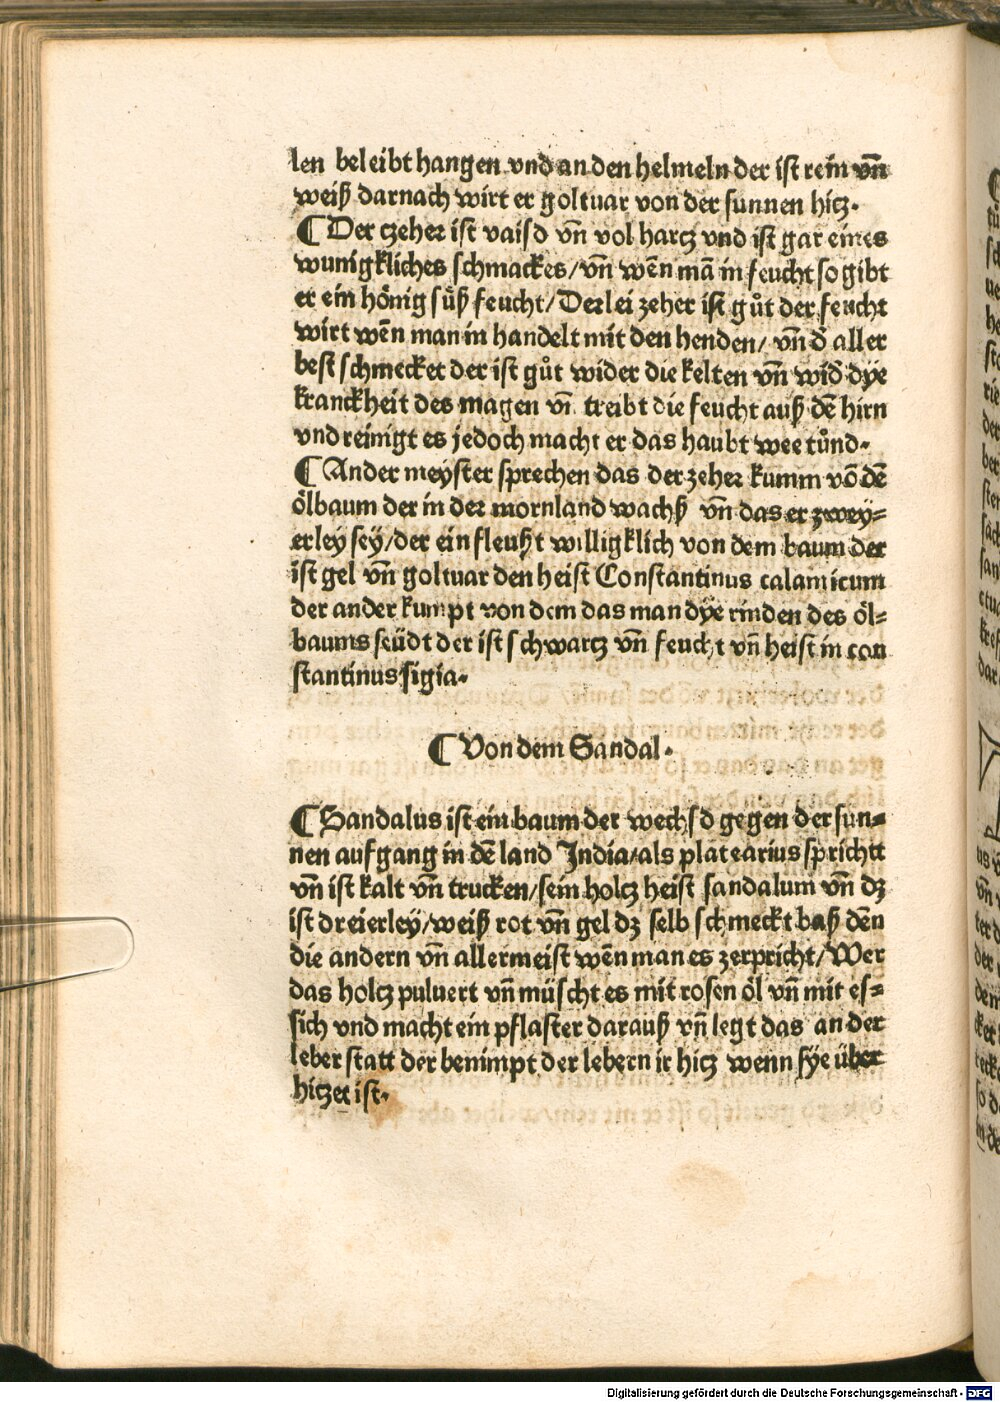 len beleibt hangen vnd an den helmeln der ist rein vñ
weiß darnach wirt er goltuar von der sunnen hitz.
¶ Der czeher ist vaisd vñ vol hartz vnd ist gar eines
wunigkliches schmackes/vñ wen̄ mā in feucht so gibt
er ein hönig süß feucht/Derlei zeher ist gůt der feucht
wirt wen̄ man in handelt mit den henden/ vñ d̄ aller
best schmecket der ist gůt wider die kelten vñ wid̄ dÿe
kranckheit des magen vñ treibt die feucht auß dē hirn
vnd reinigt es jedoch macht er das haubt wee tůnd.
¶ Ander meÿster sprechen das der zeher kumm vō dē
ölbaum der in der mornland wachß vñ das er zweÿ=
erleÿ seÿ/der ein fleußt willigklich von dem baum der
ist gel vñ goltuar den heist Constantinus calamicum
der ander kumpt von dem das man dÿe rinden des öl=
baums seüdt der ist schwartz vñ feucht vñ heist in con
stantinus sigia.
¶ Von dem Sandal.
¶ Sandalus ist ein baum der wechsd gegen der sun=
nen aufgang in dē land India/als platearius sprichtt
vñ ist kalt vñ trucken/sein holtz heist sandalum vñ dz
ist dreierleÿ/weiß rot vñ gel dz selb schmeckt baß den̄
die andern vñ allermeist wen̄ man es zerpricht/Wer
das holtz puluert vñ müscht es mit rosen öl vñ mit es=
sich vnd macht ein pflaster darauß vñ legt das an der
leber statt der benimpt der lebern ir hitz wenn sÿe über
hitzet ist.
Digitalisierung gefördert durch die Deutsche Forschungsgemeinschaft - DFG